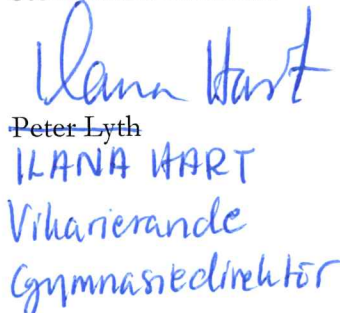 Ilana Hart
Peter Lyth
ILANA HART
Vikarierande
Gymnasiedirektör